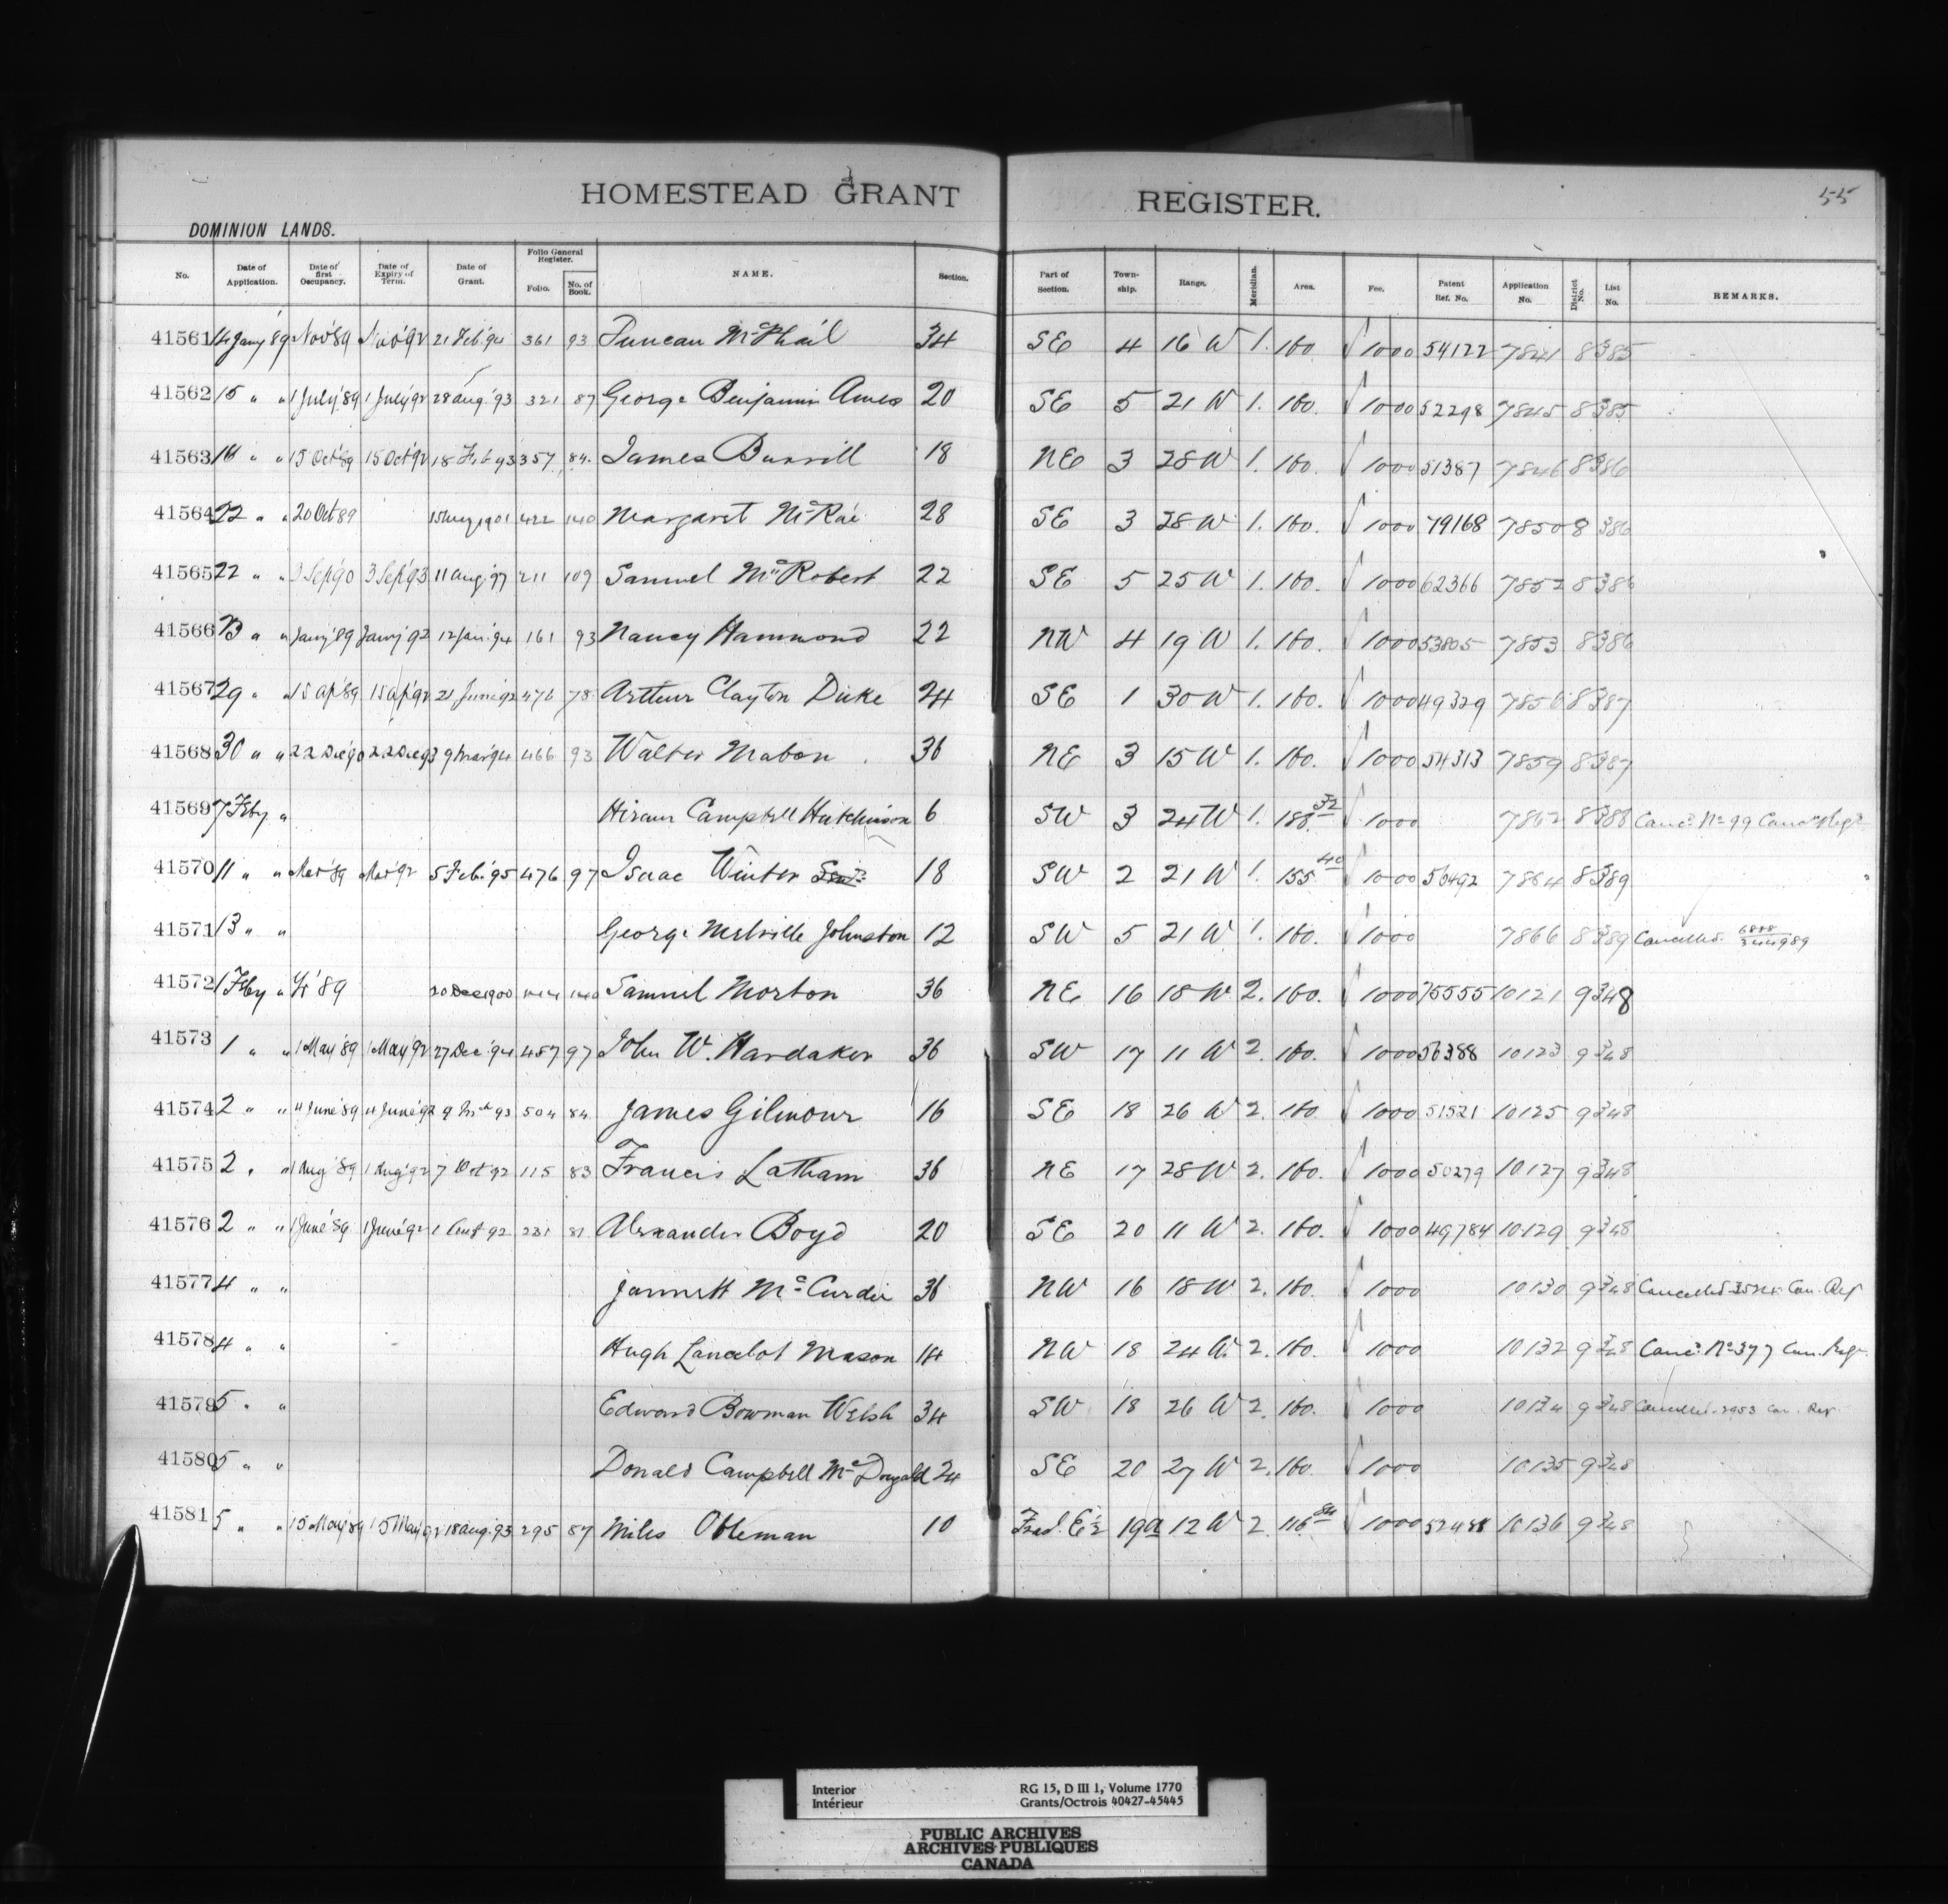 HOMESTEAD GRANT REGISTER. 55
DOMINION LANDS.
No. Date of Application. Date of first Occupancy. Date of Expiry of Term. Date of Grant. Folio General Register. Folio. No. of Book. NAME. Section. Part of Section. Town-ship. Range. Meridian. Area. Fee. Patent Ref. No. Application No. District No. List No. REMARKS.
41561 14 Jany '89 Nov '89 Nov '92 21 Feb '94 361 93 Duncan McPhail 34 SE 4 16 W 1. 160. 10 00 54122 7841 8 385
41562 15 " " 1 July '89 1 July '92 28 Aug. '93 321 87 George Benjamin Ames 20 SE 5 21 W 1. 160. 10 00 52298 7845 8 385
41563 " " 15 Oct '89 15 Oct '92 18 Feb 93 357 84. James Burrill 18 NE 3 28 W 1. 160. 10 00 51387 7846 8 386
41564 22 " " 20 Oct 89 1901 422 140 Margaret McRae 28 SE 3 28 W 1. 160. 10 00 79168 7850 8 386
41565 22 " " 3 Sep '90 3 Sep '93 11 Aug '97 211 109 Samuel McRobert 22 SE 5 25 W 1. 160. 10 00 62366 7852 8 386
41566 23 " " Jany '89 Jany '92 12 Jan. '94 161 93 Nancy Hammond 22 NW 4 19 W 1. 160. 10 00 53805 7853 8 386
41567 29 " " 15 Ap '89 15 Ap '92 21 June '92 476 78 Arthur Clayton Duke 24 SE 1 30 W 1. 160. 10 00 49329 7856 8 387
41568 30 " " 22 Dec '90 22 Dec 93 9 Mar '94 466 93 Walter Mabon 36 NE 3 15 W 1. 160. 10 00 54313 7859 8 387
41569 7 Feby " Hiram Campbell Hutchinson 6 SW 3 24 W 1. 10 00 7862 8 388 Canc. No 99 Canc. Regr
41570 11 " " Mar '89 Mar '92 5 Feb. '95 476 97 Isaac Winter 18 SW 2 21 W 1. 155 40 10 00 56492 7864 8 389
41571 13 " " George Melville Johnston 12 SW 5 21 W 1. 160. 10 00 7866 8 389 Cancelled.
41572 1 Feby " '89 20 Dec 1900 140 Samuel Morton 36 NE 16 18 W 2. 160. 10 00 75555 10121 9 348
41573 1 " " 1 May '89 1 May 92 27 Dec '94 457 97 John W. Hardaker 36 SW 17 11 W 2. 160. 10 00 56388 10123 9 348
41574 2 " " 4 June '89 4 June '92 9 Mch 93 504 84. James Gilmour 16 SE 18 26 W 2. 160 10 00 51521 10125 9 348
41575 2. " 1 Aug '89 1 Aug '92 7 Oct 92 115 83 Francis Latham 36 NE 17 28 W 2. 160. 10 00 50279 10127 9 348
41576 2 " " 1 June '89 1 June '92 1 92 231 81 Alexander Boyd 20 SE 20 11 W 2. 160. 10 00 49784 10129 9 348
41577 4 " " Jannett McCurdie 36 NW 16 18 W 2. 160. 10 00 10130 9 348 Cancelled Can. Reg
41578 4 " " Hugh Lancelot Mason 14 NW 18 24 W. 2. 160. 10 00 10132 9 348 Canc. No 377 Can. Regr.
41579 5. " Edward Bowman Welsh 34 SW 18 26 W 2. 160. 10 00 10134 9 348 Cancelled. 2953 Can. Reg.
41580 5 " " Donald Campbell McDougald 24 SE 20 27 W 2. 160. 10 00 10135 9 348
41581 5 " " 15 May '89 15 May '92 18 Aug. '93 295 87 Miles Obleman 10 Fracl. E ½ 19a 12 W 2 116 84 10 00 52488 10136 9 348
Interior RG 15, D III 1, Volume 1770
Intérieur Grants/Octrois 40427-45445
PUBLIC ARCHIVES
ARCHIVES PUBLIQUES
CANADA